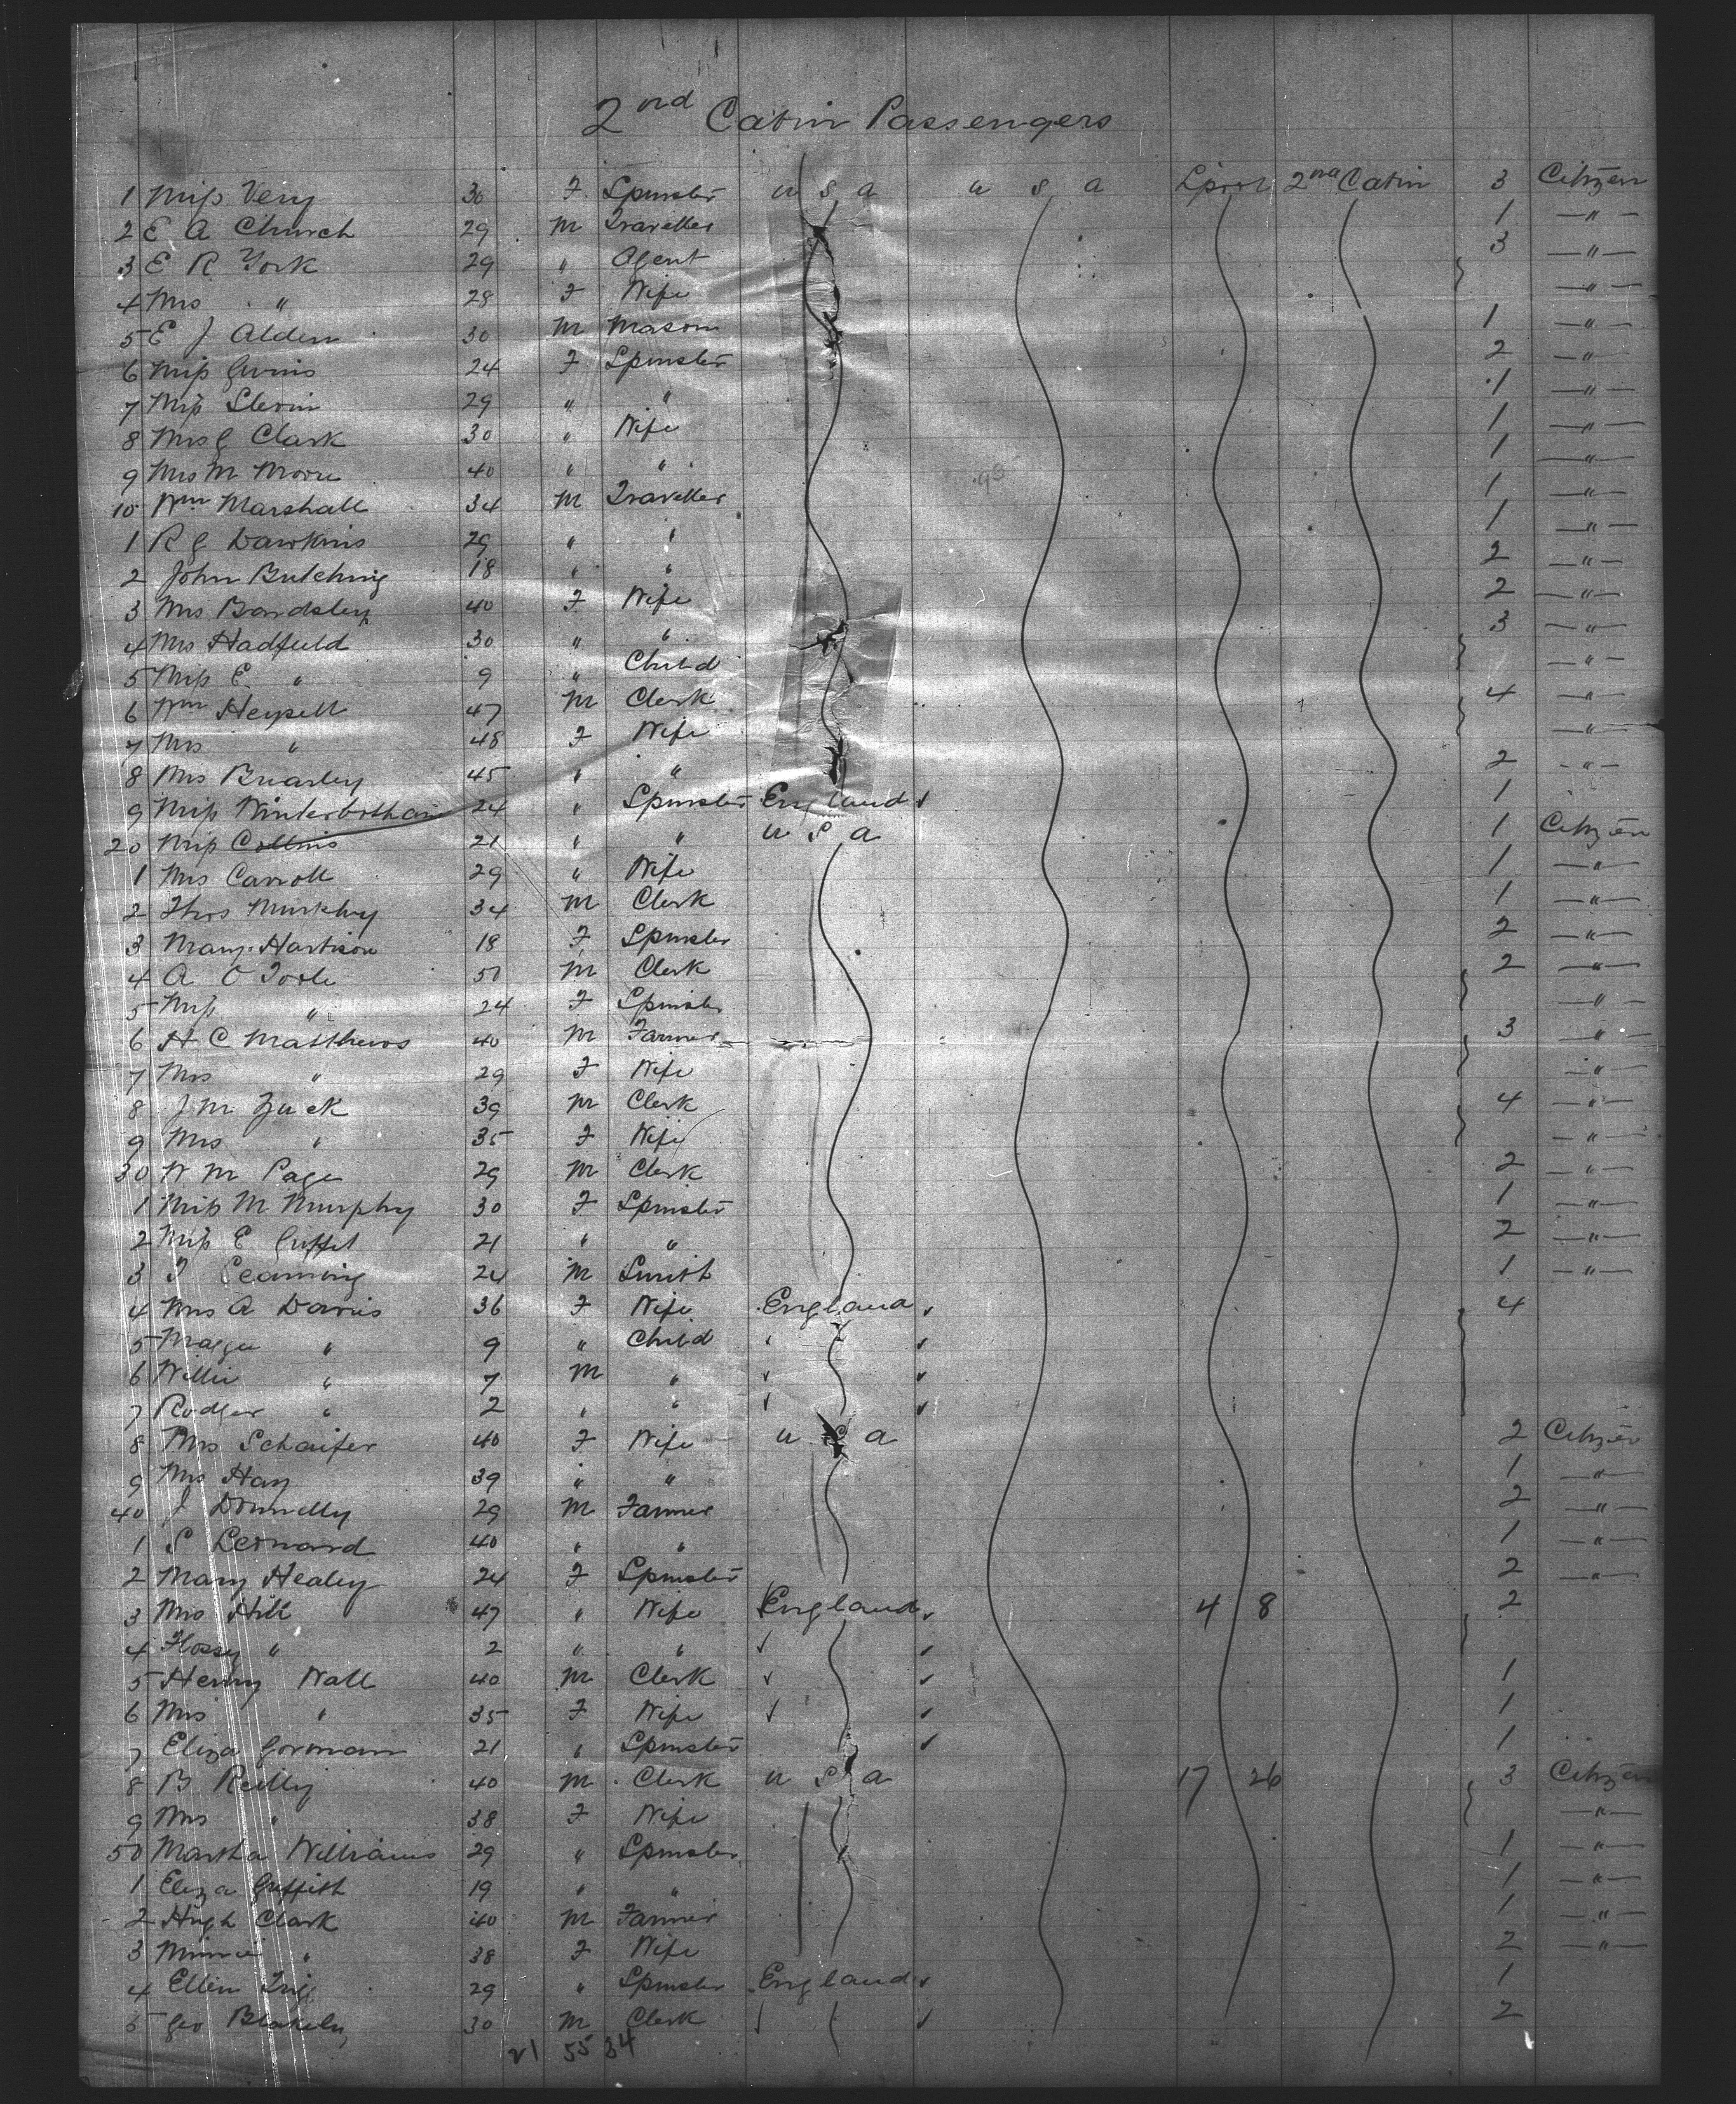 2nd Cabin Passengers
1 Miss Very 30 F Spinster U S A U S A L'pool 2nd Cabin 3 Citizen
2 E A Church 29 M Traveller 1 — " —
3 E R York 29 " Agent 3 — " —
4 Mrs " 28 F Wife — " —
5 E J Alden 30 M Mason 1 — " —
6 Miss 24 F Spinster 2 — " —
7 Miss Slevin 29 " " 1 — " —
8 Mrs Clark 30 " Wife 1 — " —
9 Mrs M Moore 40 " " 1 — " —
10 Wm Marshall 34 M Traveller 1 — " —
1 R G Dawkins 29 " " 1 — " —
2 John Butching 18 " " 2 — " —
3 Mrs Bardsley 40 F Wife 2 — " —
4 Mrs Hadfield 30 " " 3 — " —
5 Miss E " 9 " Child — " —
6 Wm Heysell 47 M Clerk 4 — " —
7 Mrs " 48 F Wife — " —
8 Mrs Briarley 45 " " 2 - " -
9 Miss Winterbotham 24 " Spinster England ✓ 1
20 Miss Collins 21 " " U S A 1 Citizen
1 Mrs Carroll 29 " Wife 1 — " —
2 Thos 34 M Clerk 1 — " —
3 Mary Harrison 18 F Spinster 2 — " —
4 A O Toole 50 M Clerk 2 — " —
5 Miss " 24 F Spinster — " —
6 H C Matthews 40 M Farmer 3 — " —
7 Mrs " 29 F Wife — " —
8 J M Zuck 39 M Clerk 4 — " —
9 Mrs " 35 F Wife — " —
30 W M Page 29 M Clerk 2 — " —
1 Miss M Murphy 30 F Spinster 1 — " —
2 Miss E 21 " " 2 — " —
3 24 M Smith 1 — " —
4 Mrs A Davis 36 F Wife England ✓ 4
5 Maggie " 9 " Child " ✓
6 Willie " 7 M " ✓ ✓
7 Rodger " 2 " " ✓ ✓
8 Mrs Schaifer 40 F Wife U S A 2 Citizen
9 Mrs Hay 39 " " 1 — " —
40 J Donnelly 29 M Farmer 2 — " —
1 S Leonard 40 " " 1 — " —
2 Mary Healey 24 F Spinster 2 — " —
3 Mrs Hill 47 " Wife England ✓ 4 8 2
4 Flossy " 2 " " ✓ ✓
5 Henry Wall 40 M Clerk ✓ ✓ 1
6 Mrs " 35 F Wife ✓ ✓ 1
7 Eliza Gorman 21 " Spinster ✓ 1
8 B Reilly 40 M Clerk U S A 17 26 3 Citizen
9 Mrs " 38 F Wife — " —
50 Martha Williams 29 " Spinster 1 — " —
1 Eliza Griffith 19 " " 1 — " —
2 Hugh Clark 40 M Farmer 1 — " —
3 Minnie " 38 F Wife 2 — " —
4 Ellen 29 " Spinster England ✓ 1
5 Geo Blakely 30 M Clerk ✓ ✓ 2
21 55 34